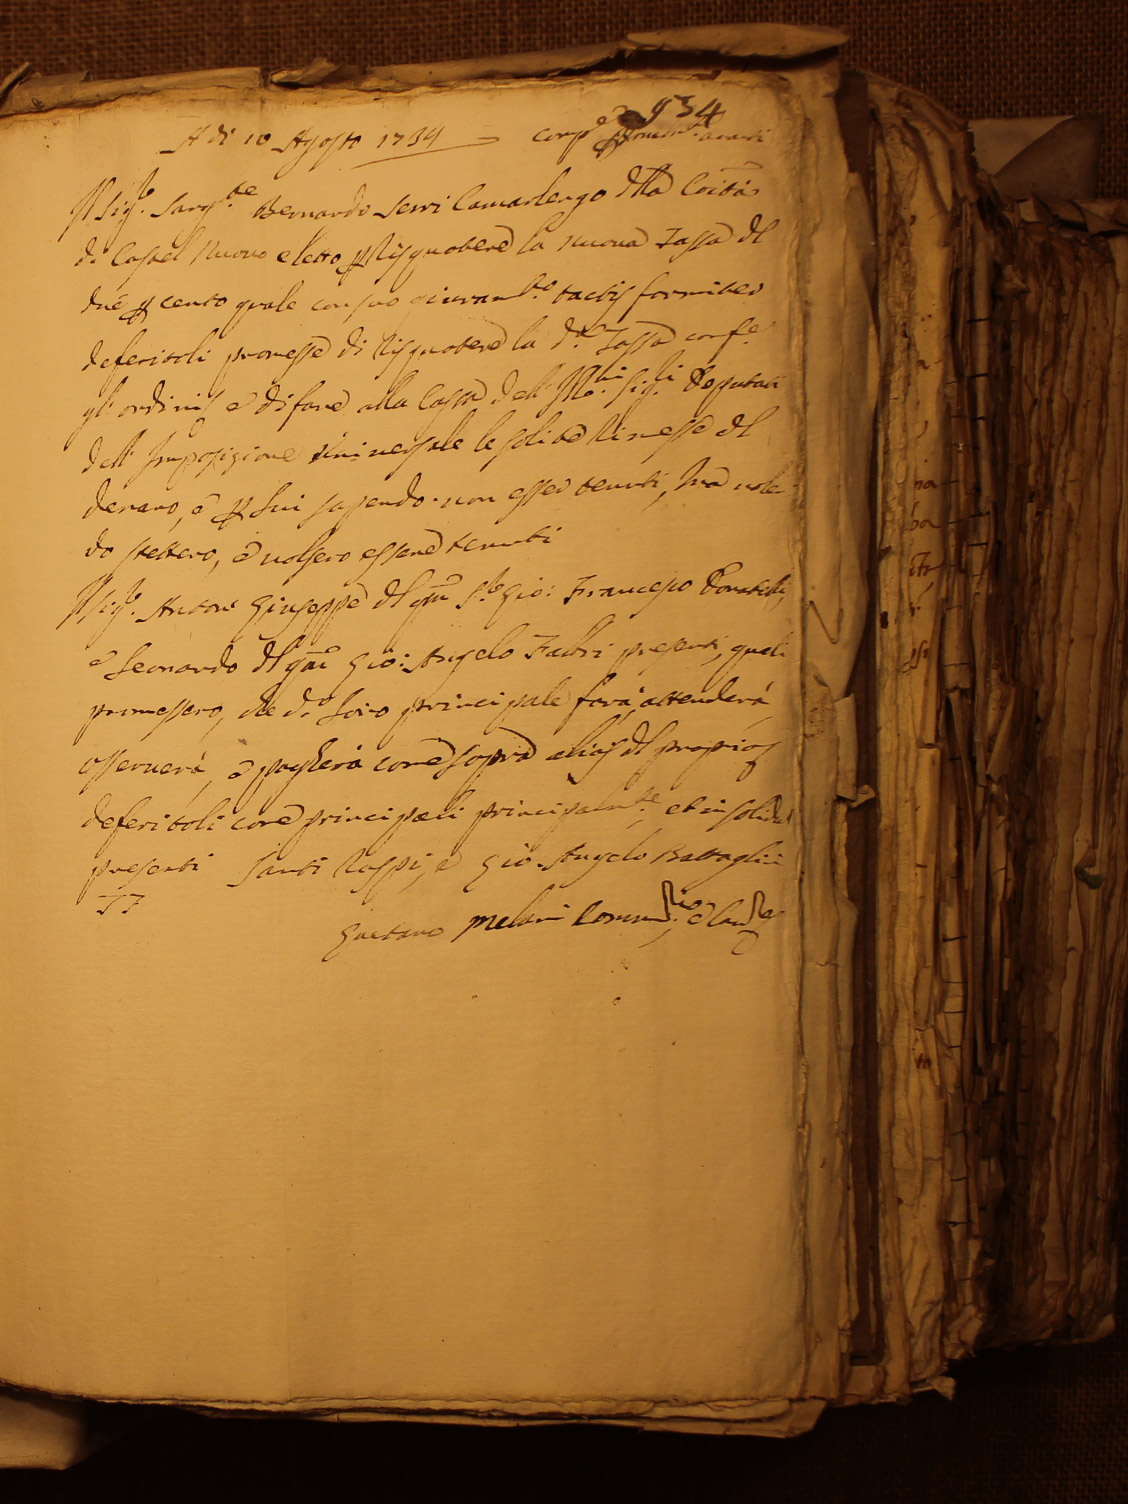 934
A dì 10 Agosto 1739 — comp.e
Il Sig.re Sarg.te Bernardo Serri Camarlengo dlla Coità
di Castel Nuovo eletto p Risquotere la nuova Tassa dl
due p cento quale con suo giuram.to tactis formiter
deferitoli promesse di Risquotere la d.a Tassa conf.e
gl'ordini e di fare alla Cassa dell' Ill.mi Sig.ri Deputati
dell' Imposizione Universale le solite Rimesse dl
denaro, e p Lui sapendo non esser tenuti, ma volen
do stettero, e volsero essere tenuti
Il Sig.re Anton Giuseppe dl qm S.r Gio: Francesco Donatelli,
e Leonardo dl qm Gio: Angelo Fabri presenti, quali
promessero, che d.o Loro principale farà, attenderà,
osserverà, e pagherà come sopra alias dl proprio
deferitoli come principali principalm.te et in solidu
presenti Santi Rossi, e Gio. Angelo Battaglii
TT
Gaetano Melani